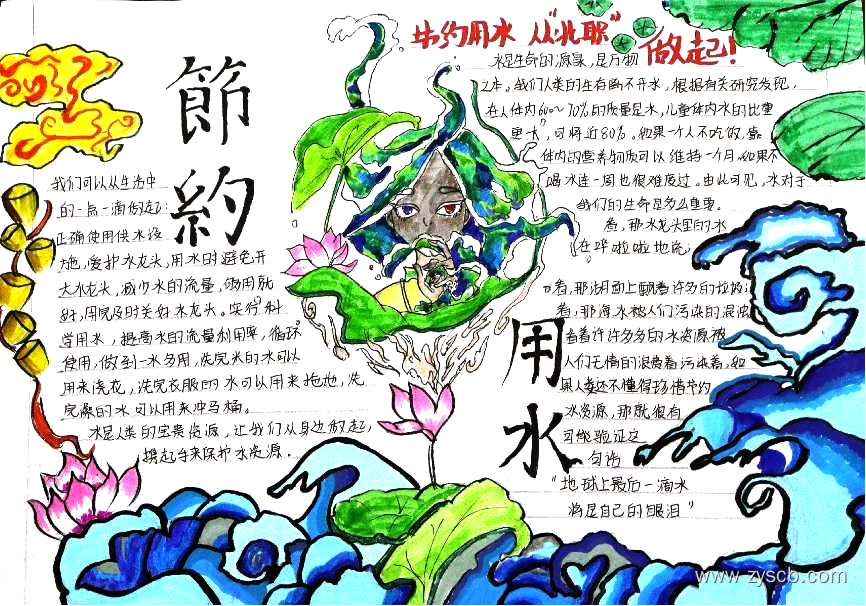 節約
用水
节约用水 从"北职"做起!
我们可以从生活中
的一点一滴做起:
正确使用供水设
施,爱护水龙头,用水时避免开
大水龙头,减少水的流量,够用就
好,用完及时关好水龙头。实行科
学用水,提高水的流量利用率,循环
使用,做到一水多用,洗完米的水可以
用来浇花,洗完衣服的水可以用来拖地,洗
完澡的水可以用来冲马桶。
水是人类的宝贵资源,让我们从身边做起,
携起手来保护水资源。
水是生命的源泉,是万物
之本。我们人类的生存离不开水,根据有关研究发现,
在人体内60~70%的质量是水,儿童体内水的比重
更大,可将近80%。如果一个人不吃饭,靠
体内的营养物质可以维持一个月,如果不
喝水连一周也很难度过。由此可见,水对于
我们的生命是多么重要。
看,那水龙头里的水
在哗啦啦地流;
看,那湖面上飘着许多的垃圾;
看,那海水被人们污染的混浊
看着许许多多的水资源被
人们无情的浪费着污染着,如
果人类还不懂得珍惜节约
水资源,那就很有
可能验证这
句话
"地球上最后一滴水
将是自己的眼泪"
www.zyscb.com